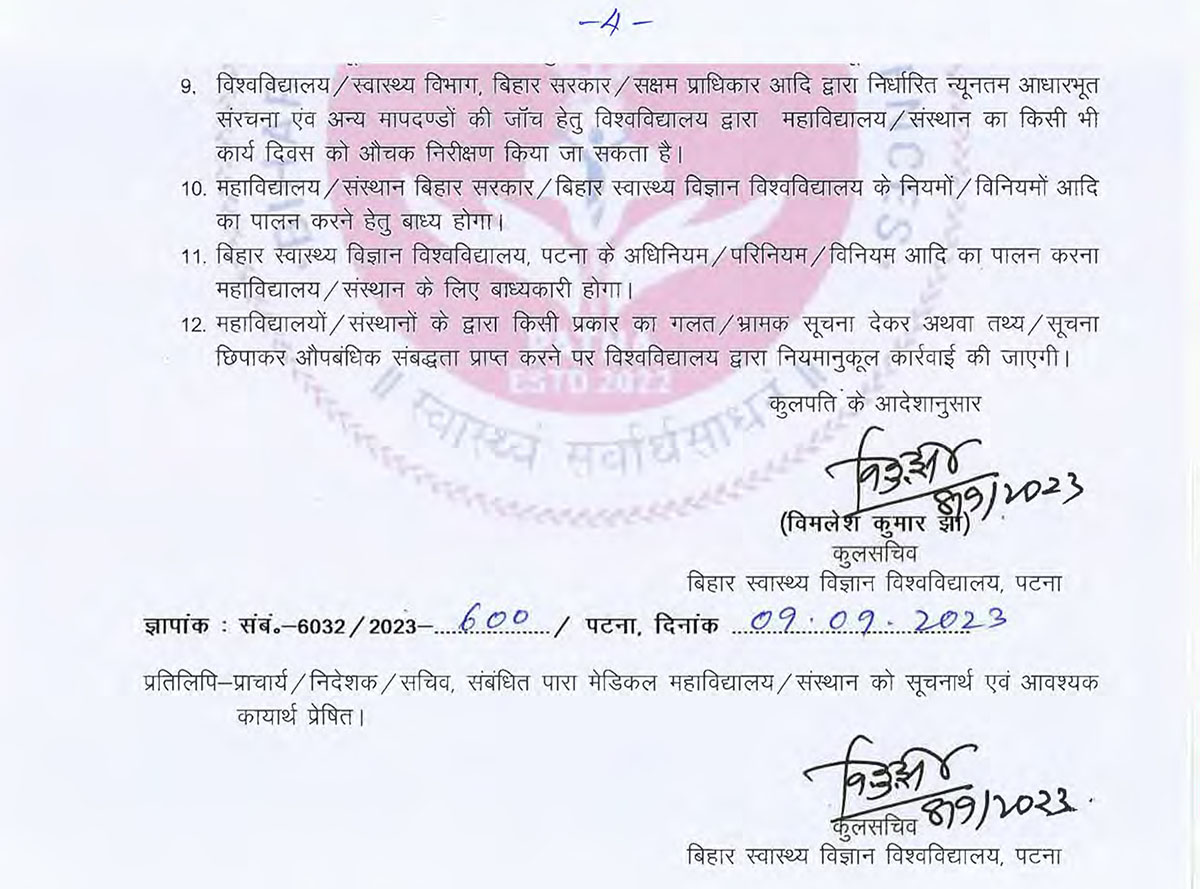 -4-
9. विश्वविद्यालय/स्वास्थ्य विभाग, बिहार सरकार/सक्षम प्राधिकार आदि द्वारा निर्धारित न्यूनतम आधारभूत
संरचना एंव अन्य मापदण्डों की जॉच हेतु विश्वविद्यालय द्वारा महाविद्यालय/संस्थान का किसी भी
कार्य दिवस को औचक निरीक्षण किया जा सकता है।
10. महाविद्यालय/संस्थान बिहार सरकार/बिहार स्वास्थ्य विज्ञान विश्वविद्यालय के नियमों/विनियमों आदि
का पालन करने हेतु बाध्य होगा।
11. बिहार स्वास्थ्य विज्ञान विश्वविद्यालय, पटना के अधिनियम/परिनियम/विनियम आदि का पालन करना
महाविद्यालय/संस्थान के लिए बाध्यकारी होगा।
12. महाविद्यालयों/संस्थानों के द्वारा किसी प्रकार का गलत/भ्रामक सूचना देकर अथवा तथ्य/सूचना
छिपाकर औपबंधिक संबद्धता प्राप्त करने पर विश्वविद्यालय द्वारा नियमानुकूल कार्रवाई की जाएगी।
ESTD 2022
॥ स्वास्थ्यं सर्वार्थसाधनं ॥
कुलपति के आदेशानुसार
8/9/2023
(विमलेश कुमार झा)
कुलसचिव
बिहार स्वास्थ्य विज्ञान विश्वविद्यालय, पटना
ज्ञापांक : संबं०-6032/2023-....600..../ पटना, दिनांक ....09.09.2023
प्रतिलिपि-प्राचार्य/निदेशक/सचिव, संबंधित पारा मेडिकल महाविद्यालय/संस्थान को सूचनार्थ एवं आवश्यक
कायार्थ प्रेषित।
8/9/2023
कुलसचिव
बिहार स्वास्थ्य विज्ञान विश्वविद्यालय, पटना